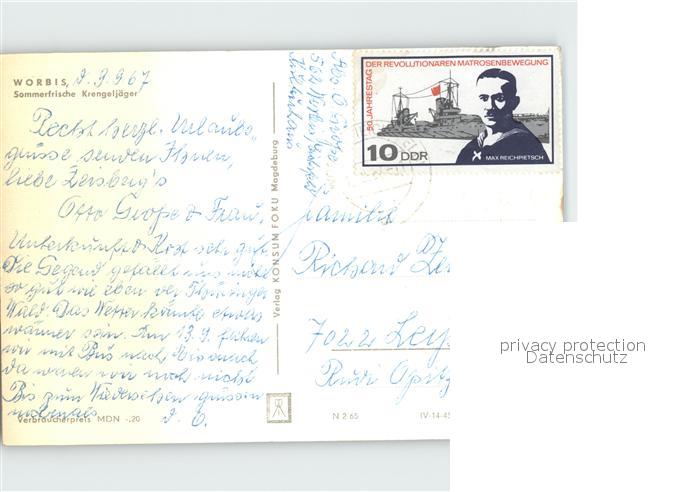 WORBIS, d. 9.9.67
Sommerfrische Krengeljäger
Recht herzl. Urlaubs-
grüsse senden Ihnen,
liebe Zeisberg's
Otto Große & Frau,
Unterkunft & Kost sehr gut.
Die Gegend gefällt uns nicht
so gut wie eben der Thüringer
Wald. Das Wetter könnte etwas
wärmer sein. Am 13.9. fahren
wir mit Bus nach Eisenach
da waren wir noch nicht
Bis zum Wiedersehen grüssen
nochmals d. O.
Verbraucherpreis MDN -,20
Verlag KONSUM FOKU Magdeburg
Abs. O. Große
562 Worbis
50. JAHRESTAG DER REVOLUTIONÄREN MATROSENBEWEGUNG
10 DDR
MAX REICHPIETSCH
Familie
Richard
7022
Rudi Opitz
N 2/65 IV-14-45
privacy protection
Datenschutz